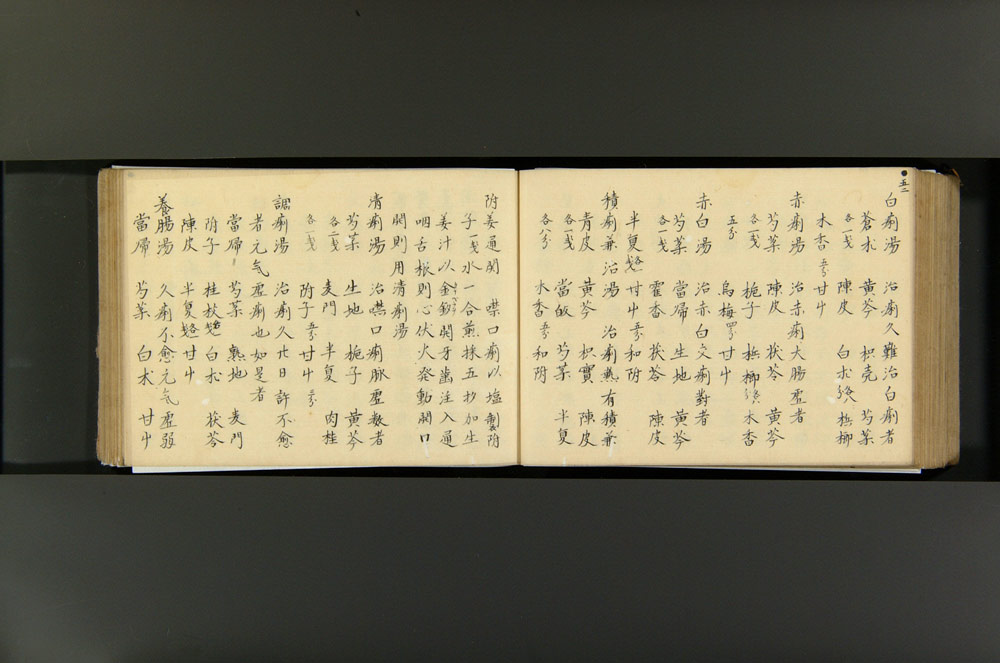 五二
白痢湯 治痢久難治白痢者
蒼朮 黄芩 枳売 芍薬
各一戔 陳皮 白朮 梹榔
木香 五分 甘屮
赤痢湯 治赤痢大腸虚者
芍薬 陳皮 茯苓 黄芩
各一戔 梔子 梹榔 木香
五分 烏梅 四分 甘屮
赤白湯 治赤白交痢對者
芍薬 當帰 生地 黄芩
各一戔 霍香 茯苓 陳皮
半夏 各一戔 甘屮 五分 和附
積痢兼治湯 治痢熱有積兼
青皮 黄芩 枳實 陳皮
各一戔 當皈 芍薬 半夏
各八分 木香 五分 和附
附姜通関 噤口痢以塩製附
子一戔水一合煎採五抄加生
姜汁以金釵開牙齒注入通
咽舌根則心伏火発動開口
開則用清痢湯
清痢湯 治噤口痢脈虚数者
芍薬 生地 梔子 黄芩
各一戔 麦門 半夏 肉桂
各一戔 附子 五分 甘屮 三分
調痢湯 治痢久廿日許不愈
者元気虚痢也如是者
當帰 芍薬 熟地 麦門
附子 桂枝 白朮 茯苓
陳皮 半夏 甘屮
養腸湯 久痢不愈元気虚弱
當帰 芍薬 白朮 甘屮